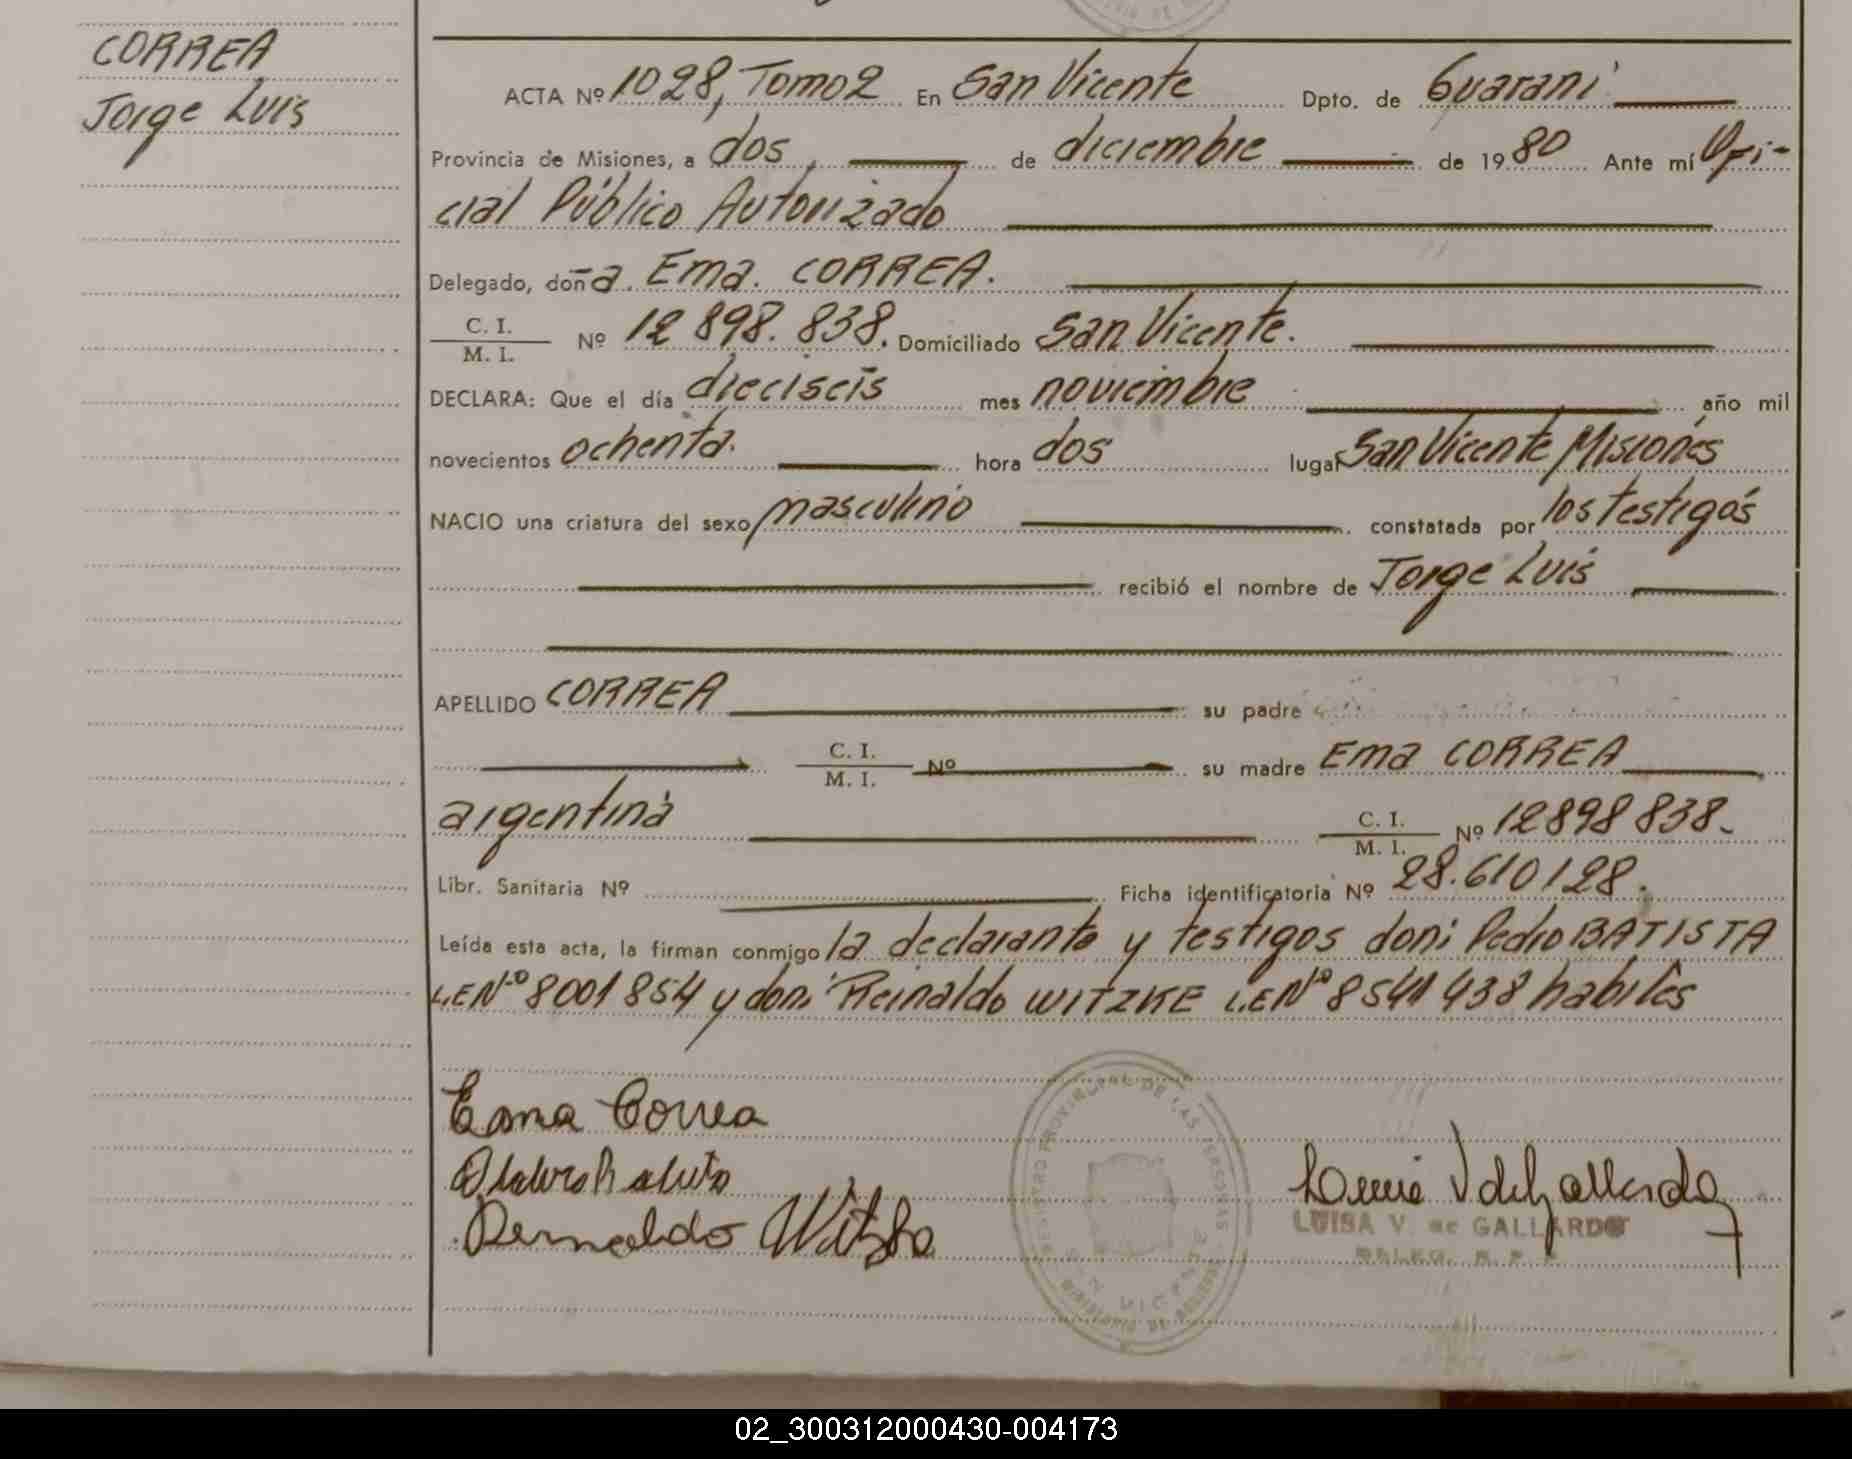 CORREA
Jorge Luis
ACTA Nº 1028, Tomo 2 En San Vicente Dpto. de Guaraní
Provincia de Misiones, a dos, de diciembre de 1980 Ante mí Ofi-
cial Público Autorizado
Delegado, doña. Ema. CORREA.
C. I.
M. I. Nº 12 898. 838. Domiciliado San Vicente.
DECLARA: Que el día dieciseis mes noviembre año mil
novecientos ochenta. hora dos lugar San Vicente Misiones
NACIO una criatura del sexo masculino constatada por los testigos
recibió el nombre de Jorge Luis
APELLIDO CORREA su padre
C. I.
M. I. Nº su madre Ema CORREA
argentina C. I.
M. I. Nº 12898 838.
Libr. Sanitaria Nº Ficha identificatoria Nº 28.610128.
Leída esta acta, la firman conmigo la declarante y testigos don: Pedro BATISTA
L.E Nº 8001854 y don: Reinaldo WITZKE L.E Nº 8541438 habiles
Ema Correa
REGISTRO PROVINCIAL DE LAS PERSONAS
SAN VICENTE
MINISTERIO DE GOBIERNO
LUISA V. de GALLARDO
DELEG. R. P. P.
02_300312000430-004173